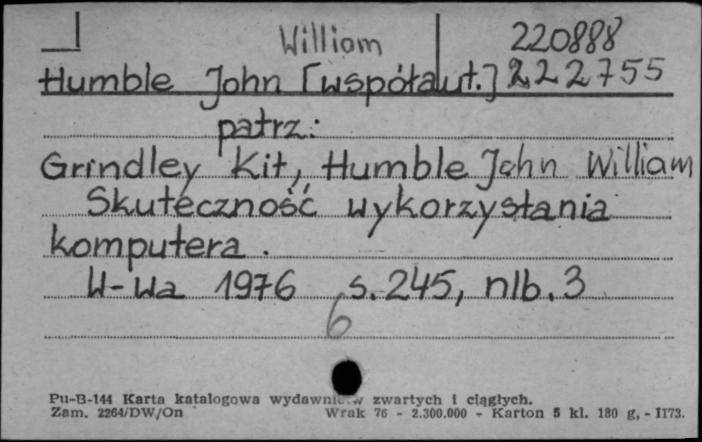 William 220888
Humble John [współaut.] 222755
patrz:
Grindley Kit, Humble John William
Skuteczność wykorzystania
komputera.
W-wa 1976 s. 245, nlb. 3
6
Pu-B-144 Karta katalogowa zwartych i ciągłych.
Zam. 2264/DW/On Wrak 76 - 2.300.000 - Karton 5 kl. 180 g, - I173.